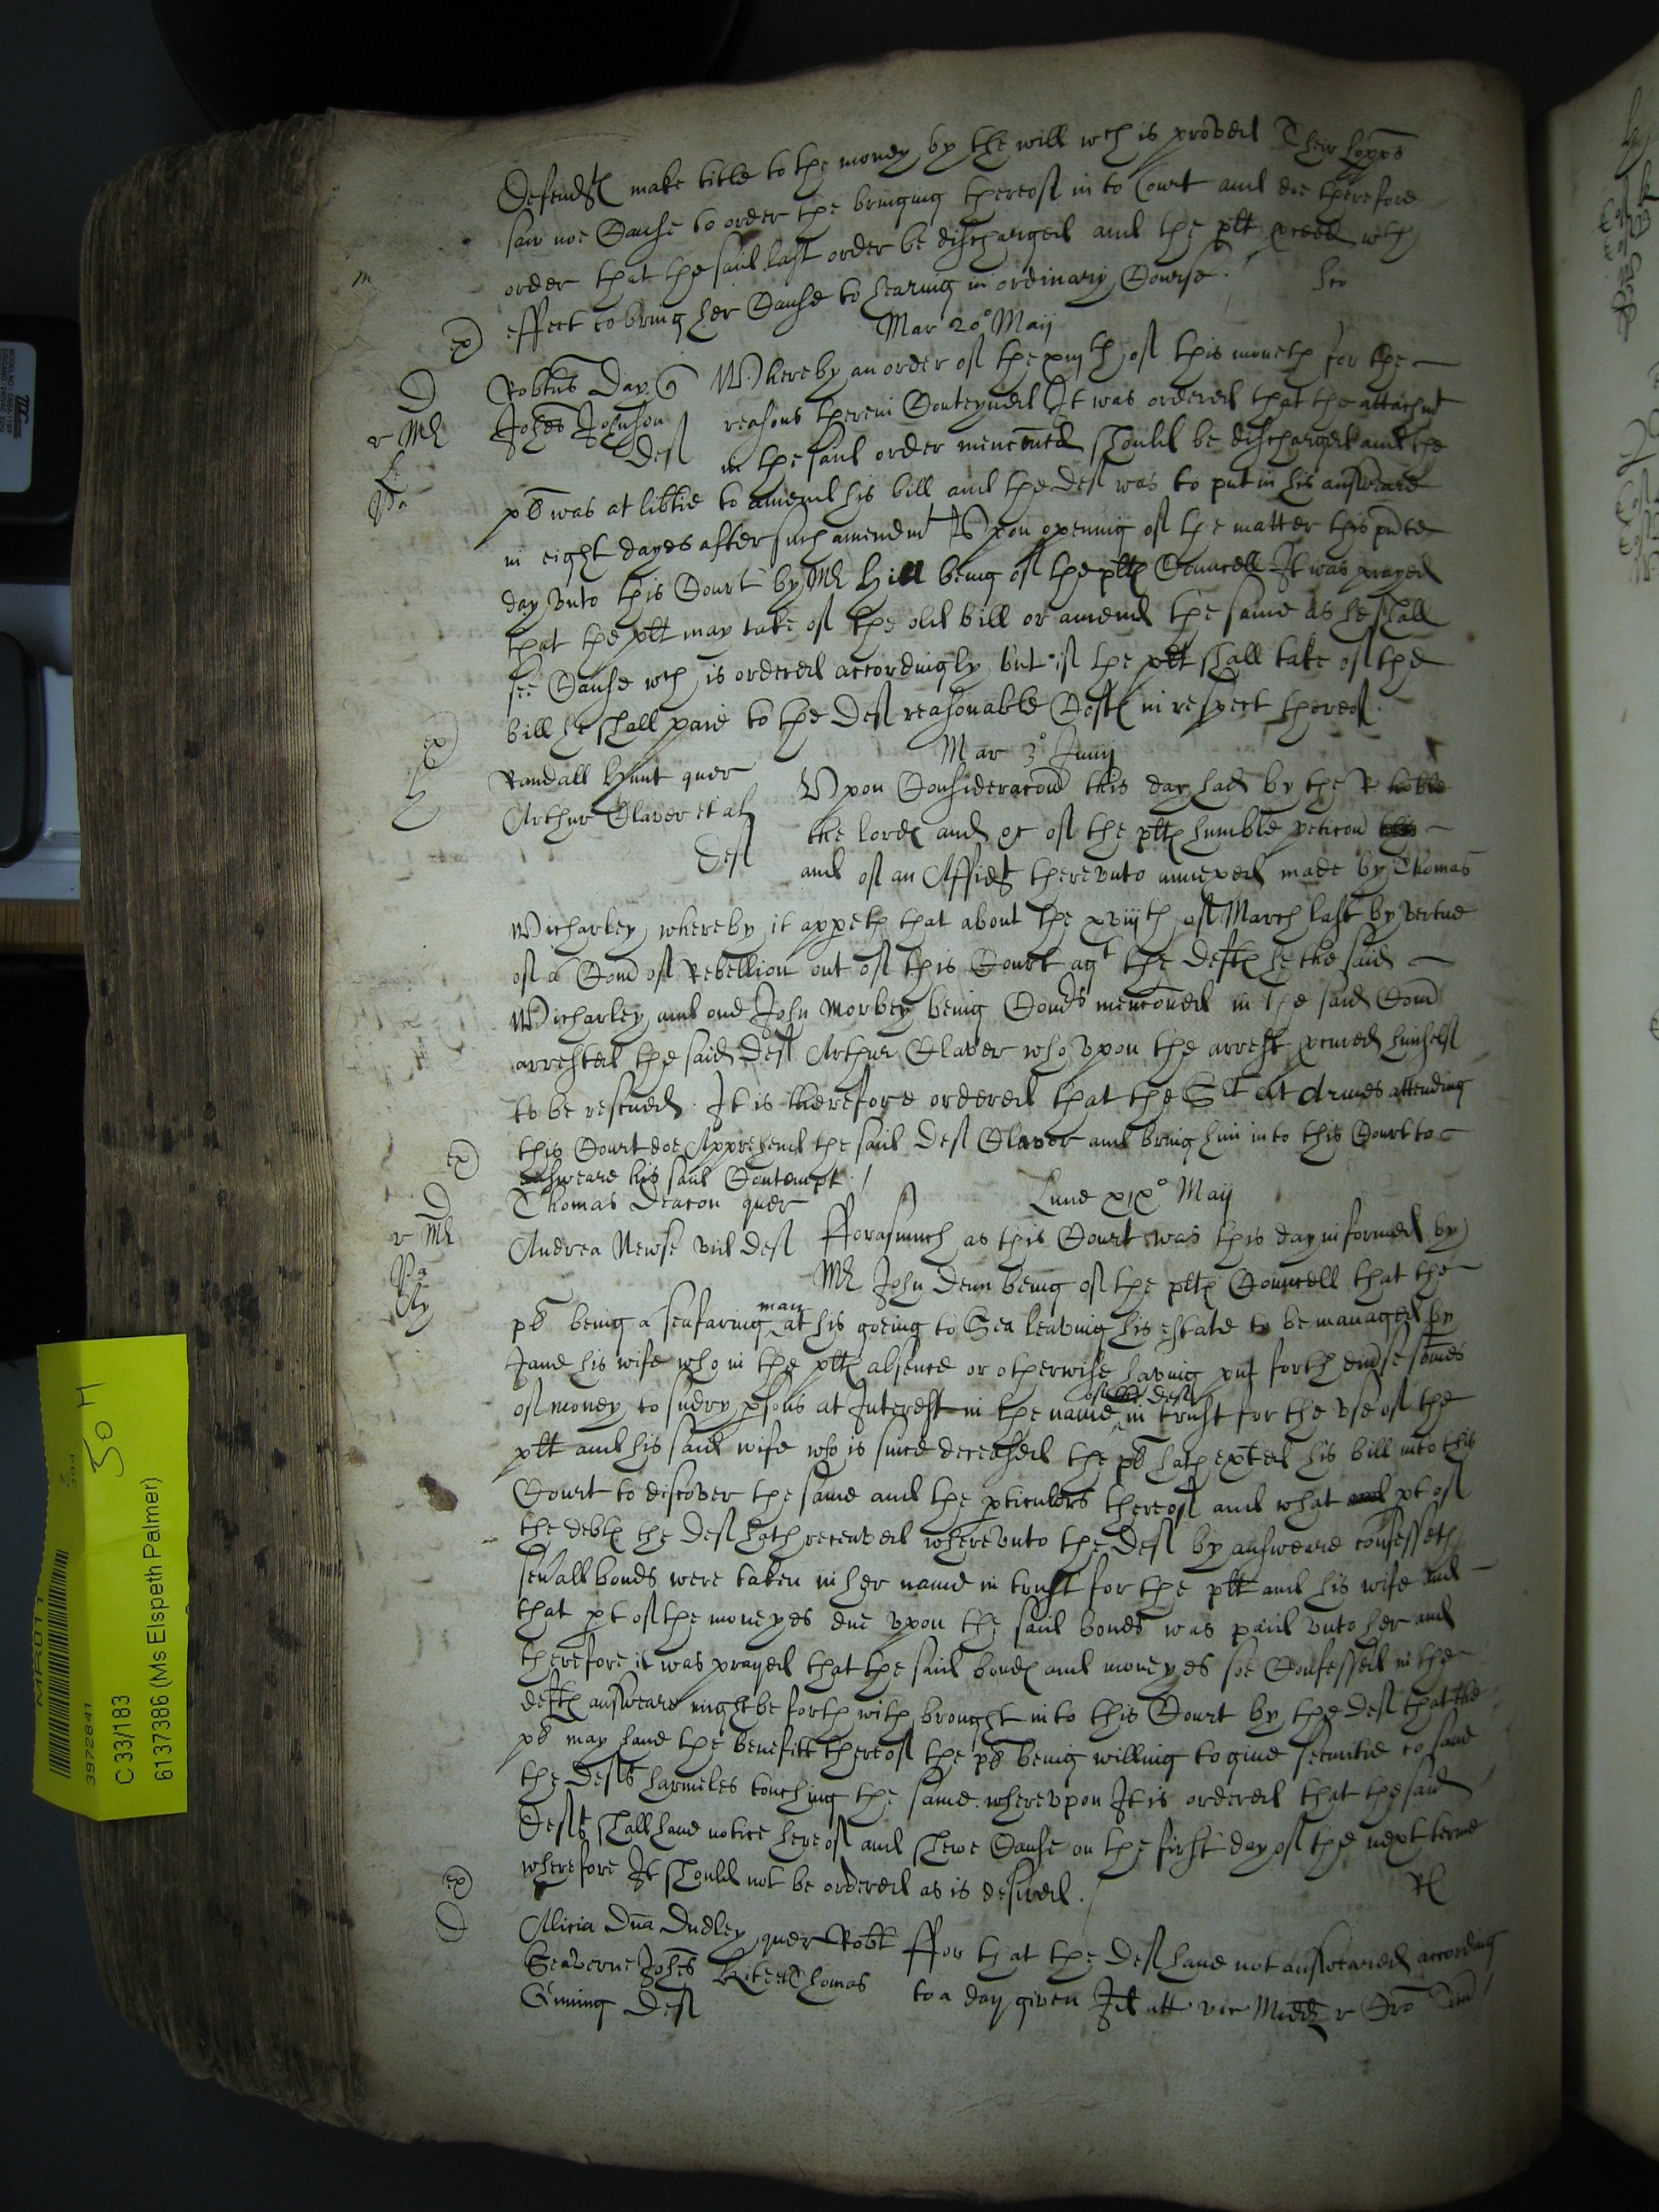 Defendts make title to the money by the will wch is proved Their Lopps
saw noe Cause to order the bringing thereof in to Court and doe therefore
order that the said last order be discharged and the plt proceed wth
effect to bring her Cause to hearing in ordinary Course.
Mar 20° Maij
Robtus Day q Whereby an order of the xiijth of this moneth for the
Johes Johnson def reasons therein Conteyned It was ordered that the attachmt
in the said order menconed should be discharged and the
pl was at libtie to amend his bill and the def was to put in his answeare
in eight dayes after such amendmt Upon opening of the matter this pnte
day unto this Court by Mr Hill being of the plts Councell It was prayed
that the plt may take of the old bill or amend the same as he shall
see Cause wch is ordered accordingly but if the plt shall take of the
bill he shall paie to the def reasonable Costs in respect thereof.
Mar 3° Junij
Randall Hunt quer Upon Consideracon this day had by the R
Arthur Claver et al the lords and of the plts humble peticon
def and of an Affidt thereunto annexed made by Thomas
Wicharley whereby it appeth that about the xviijth of March last by vertue
of a Com of Rebellion out of this Court agt the defts he the said
Wicharley and one John Morbey being Comrs menconed in the said Com
arrested the said def Arthur Claver who upon the arrest himself
to be rescued. It is therefore ordered that the Sit at Armes attending
this Court doe Apprehend the said def Claver and bring him into this Court to
answeare his said Contempt./
Thomas Deacon quer Lune xix° Maij
Andrea Newse vid def fforasmuch as this Court was this day informed by
Mr John Denn being of the plts Councell that the
pl being a seafaring man at his goeing to Sea leaving his estate to be managed by
Jane his wife who in the plts absence or otherwise having put forth divse somes
of money to sudry psons at Interest in the name of def in trust for the use of the
plt and his said wife who is since deceased the pl hath exhted his bill into this
Court to discover the same and the pticulers thereof and what and pt of
the debts the def hath receaved whereunto the def by answeare confesseth
sevall bonds were taken in her name in trust for the plt and his wife and
that pt of the moneyes due upon the said bonds was paid unto her and
therefore it was prayed that the said bonds and moneyes soe Confessed in the
defts answeare might be forth with brought into this Court by the def that the
pl may have the benefitt thereof the pl being willing to give securitie to save
the defts harmeles touching the same. whereupon It is ordered that the said
defts shall have notice hereof and shewe Cause on the first day of the next terme
wherefore It should not be ordered as is desired./
Alicia Dna Dudley quer Robt ffor that the def have not answeared according
Seaverne Johes Kite Thomas to a day given Id att vic Midd
Gining def
MR011
3972841
C 33/183
6137386 (Ms Elspeth Palmer)
30 H